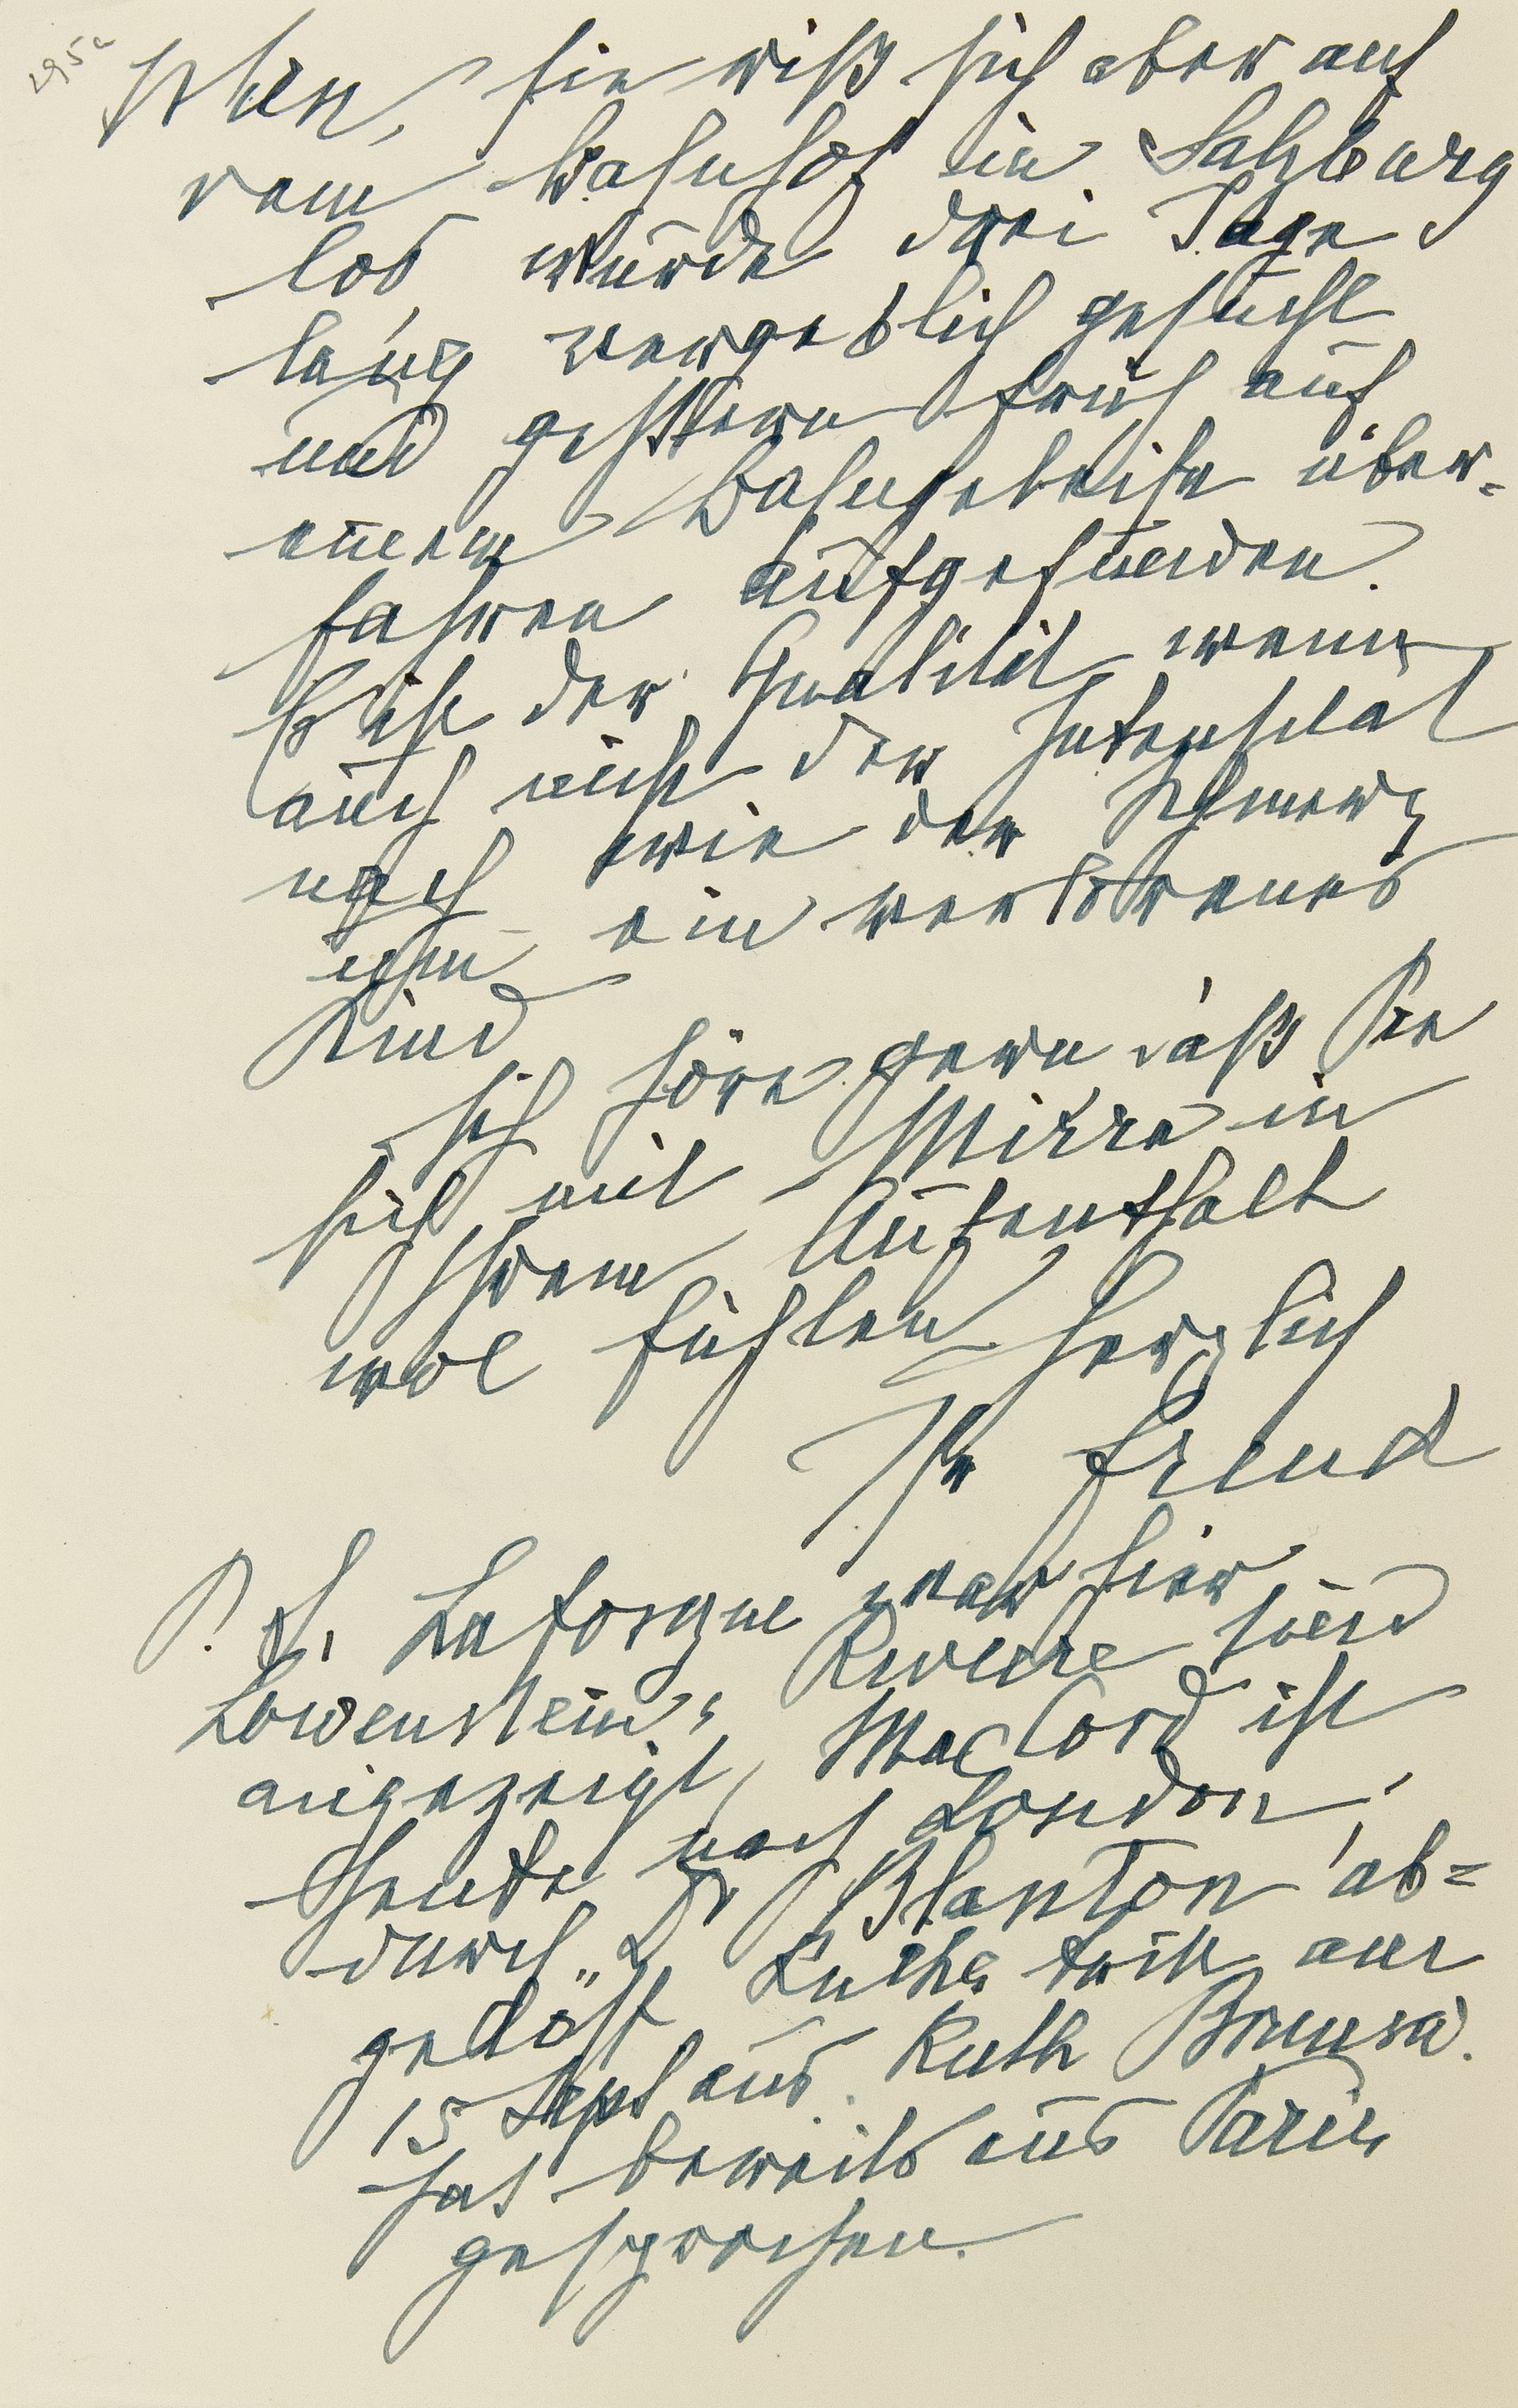 295a
sollen, sie riß sich aber auf
dem Bahnhof in Salzburg
los wurde drei Tage
lang vergeblich gesucht
und gestern früh auf
einem Bahngeleise über=
fahren aufgefunden.
Bist der Qualität wenn
auch nicht der Intensität
nach wie der Schmerz
um ein verlorenes
Kind
Ich höre gern daß Sie
sich mit Mirra in
Ihrem Aufenthalt
wol fühlen herzlich
Ihr Freud
P.S. Laforgue war hier
Löwenstein, Riviere sind
angezeigt, MacCord ist
heute nach London;
durch Dr Blanton ab=
gelöst, Ruths trifft am
15 Sept ein. Ruth Brunsw.
hat bereits aus Paris
gesprochen.